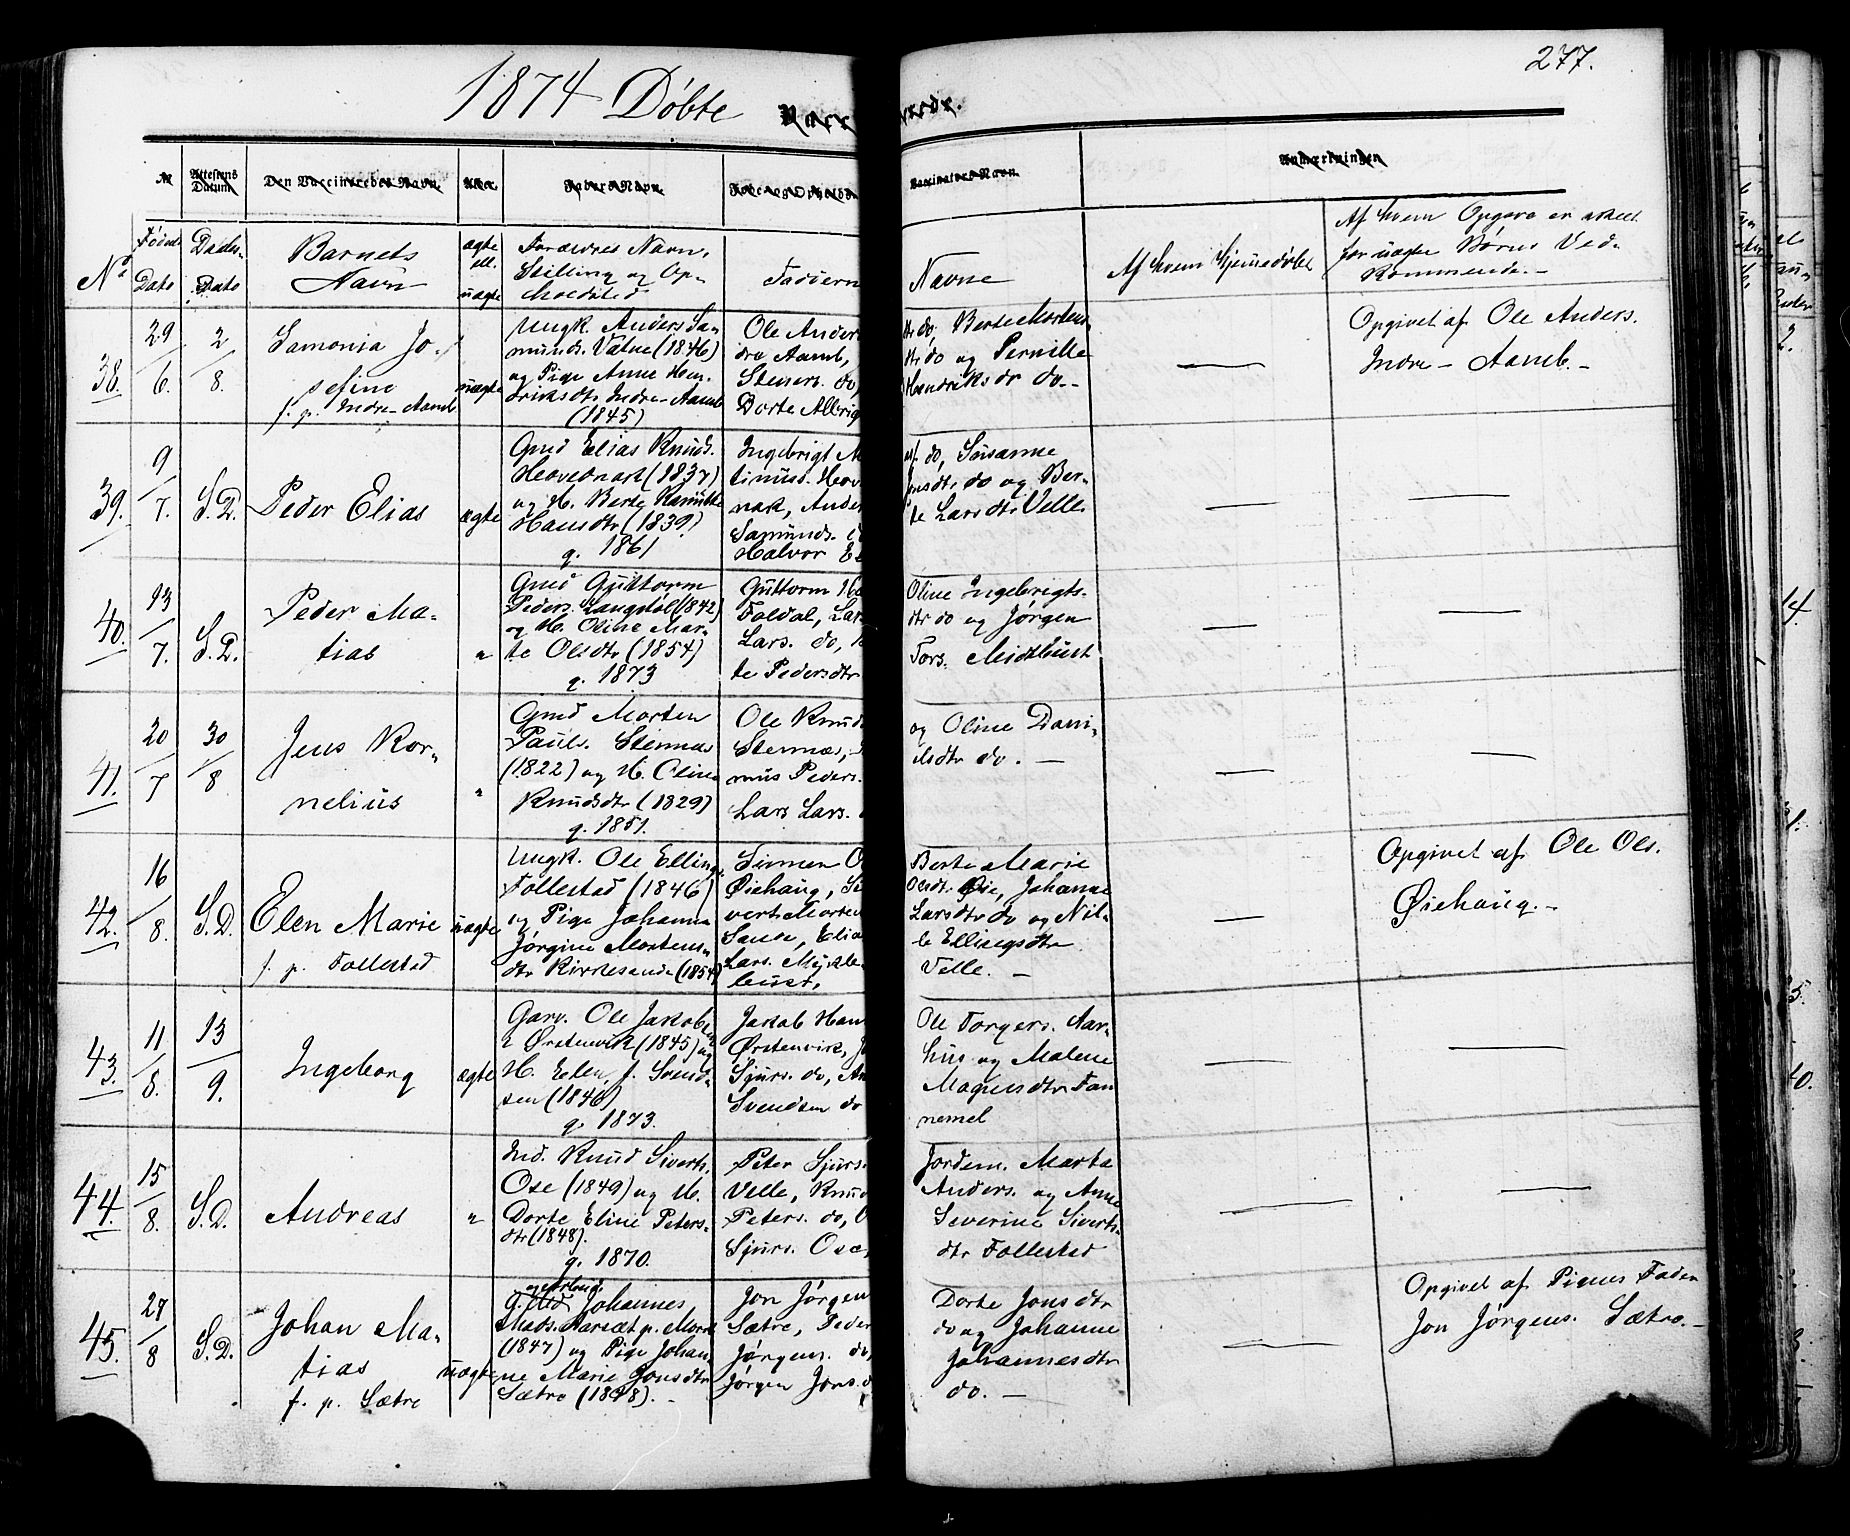 277.
1874 Døbte
№
Attestens Datum
Den Vaccineredes Navn
Alder
Faders Navn
Vaccinators Navn
Anmærkninger
No
Føde Dato
Daabs Dato
Barnets Navn
ægte ell. uægte
Forældres Navn, Stilling og Opholdsted
Faddernes Navne
Af hvem hjemmedøbt
Af hvem Opgave er skeet for uægte Børns Vedkommende.-
38.
29/6.
2/8.
Samonia Jo-
sefine
f. p. Indre-Aamb
uægte
Ungk. Anders Sa-
munds. Vatne (1846)
og Pige Anne Hen-
driksdtr Indre-Aamb
(1845)
Ole Ander
dre Aamb,
Steners. do,
Dorte Albrig
dtr do, Berte Mortens
dtr do og Pernille
Hendriksdr do.-
—
Opgivet af Ole Anders.
Indre-Aamb.-
39.
9/7.
S.D.
Peder Elias
ægte
Gmd Elias Knuds.
Hovednak (1837)
og H. Berte
Hansdtr (1839)
g. 1861
Ingebrigt M
tinusd. Hov
nak, Ander
Samunds.
Halvor
do, Susanne
Jensdtr do og Ber-
te Larsdtr Velle
—
—
40.
13/7.
S.D.
Peder Ma-
tias
"
Gmd Guttorm
Peders. Langstøl (1842)
og H. Oline Mar-
te Olsdtr (1854)
g. 1873
Guttorm
Foldal, Lar
Lars. do,
te Pedersdtr
Oline Ingebrigts-
dtr do og Jørgen
Tors. Midtbust
—
—
41.
20/7
30/8
Jens Kor-
nelius
"
Gmd Morten
Pauls. Stennæs
(1822) og H. Oline
Knudsdtr (1829)
g. 1851.
Ole Knud
Stennæs,
mus Peders.
Lars Lars.
og Oline Dani-
elsdtr do. —
—
—
42.
16/8.
S.D.
Elen Marie
f. p. Follestad
uægte
Ungk. Ole Ellings.
Follestad (1846)
og Pige Johanne
Jørgine Mortens-
dtr Kirkesande (1854)
Simen O
Øiehaug, Si
vert Morten
Sande, Elia
Lars. Mykle-
bust,
Berte Marie
Olsdtr. Øie, Johanne
Larsdtr do og Nil-
le Ellingsdtr
Velle. —
—
Opgivet af Ole Ols.
Øiehaug.-
43.
11/8.
13/9.
Ingeborg
ægte
Garv. Ole Jakobs.
Ørstenvik (1845) og
H. Elen, f. Svend-
sen (1846)
g. 1873.
Jakob Han
Ørstenvik,
Sjurs. do, An
Svendsen do
Ole Torgers. Aar-
hus og Malene
Magnusdtr Fan
nemel
—
—
44.
15/8.
S.D.
Andreas
"
Ind. Knud Siverts.
Ose (1849) og H.
Dorte Eline Peters-
dtr (1848).
g. 1870.
Peter Sjurs.
Velle, Knud
Peters. do,
Sjurs. Ose,
Jordem. Marta
Anders. og Anne
Severine Siverts
dtr Follestad
—
—
45.
27/8
S.D.
Johan Ma-
tias
f. p. Sætre
uægte
Johannes
Mads. Aarsæt p. Mork
(1847) og Pige Johan-
ne Marie Jonsdtr
Sætre (1848).-
Jon Jørgen
Sætre, Peder
Jørgens. do,
Jørgen Jons. d
Dorte Jonsdtr
do og Johanne
Johannesdtr
do. —
—
Opgivet af Pigens Fader
Jon Jørgens. Sætre.-